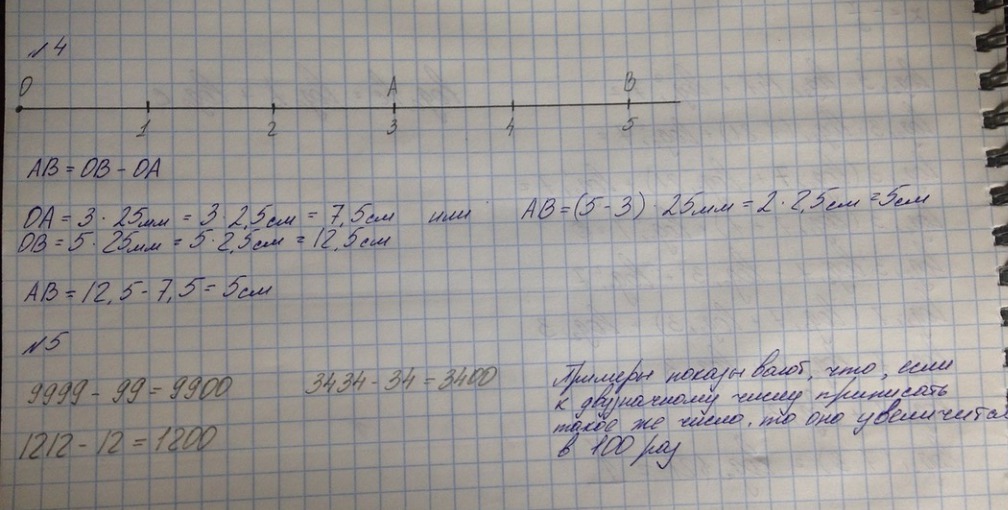 №4
O A B
1 2 3 4 5
AB = OB - OA
OA = 3 · 25мм = 3 · 2,5см = 7,5см или AB = (5 - 3) · 25мм = 2 · 2,5см = 5см
OB = 5 · 25мм = 5 · 2,5см = 12,5см
AB = 12,5 - 7,5 = 5см
№5
9999 - 99 = 9900 3434 - 34 = 3400
1212 - 12 = 1200
Примеры показывают, что, если
к двузначному числу приписать
такое же число, то оно увеличится
в 100 раз